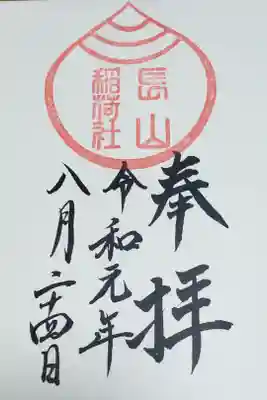 奉拝
長山
稲荷社
令和元年
八月二十四日